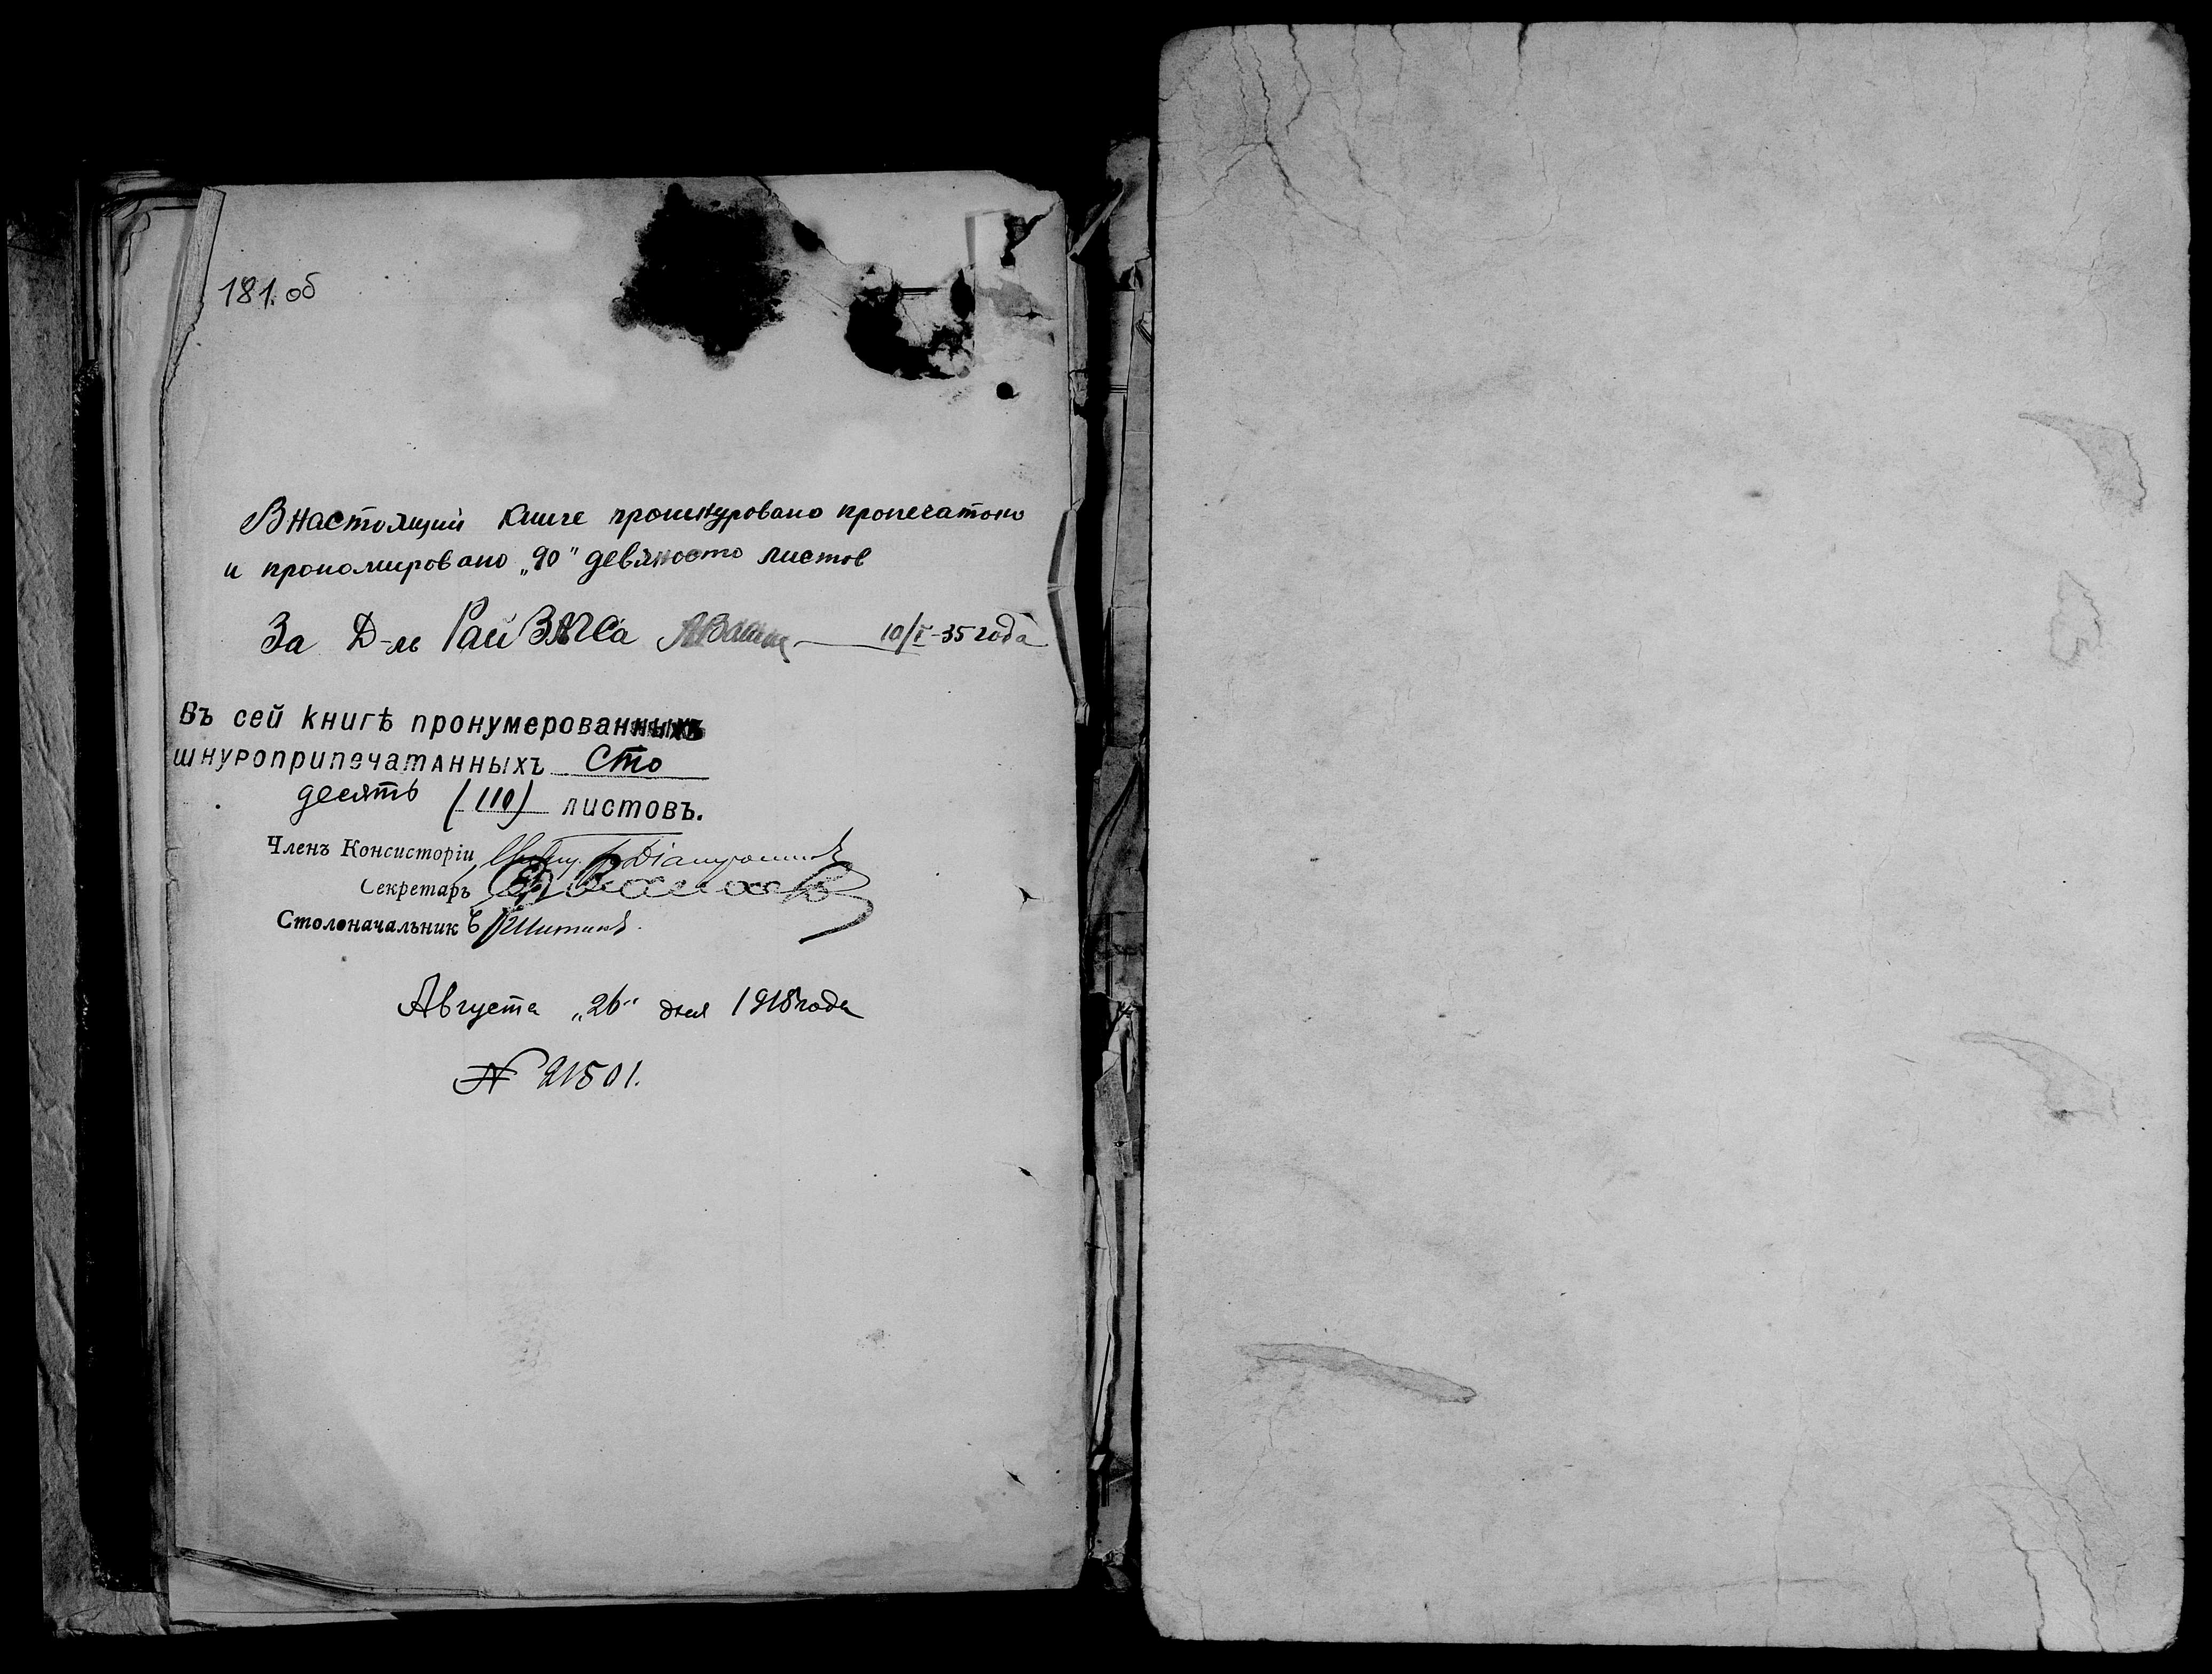 181. об
В настоящий книге прошнуровано пропечатоно
и прономировано „90" девяносто листов
За Д-ль Рай ЗАГСа 10/I-35 года
Въ сей книгѣ пронумерованныхъ
шнуроприпечатанныхъ Сто
десять (110) листовъ.
Членъ Консисторіи
Секретарь
Столоначальникъ
Августа „26" дня 1918 года
№ 21501.